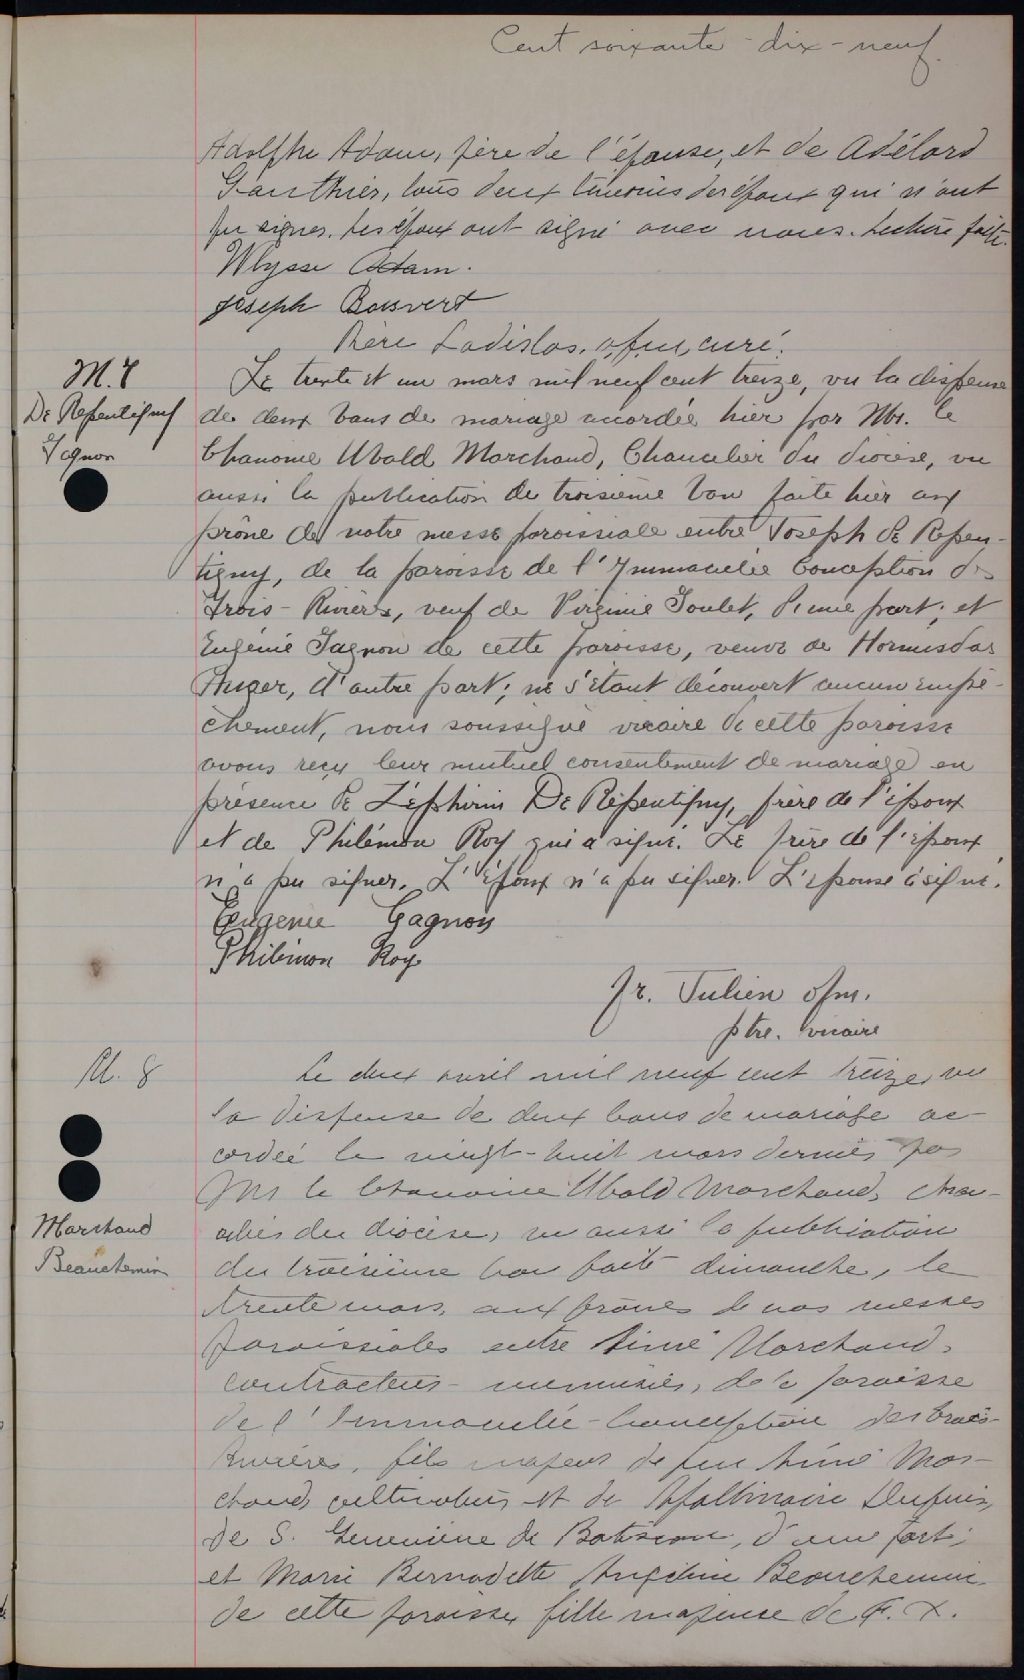 Cent soixante-dix-neuf
Adolphe Adam, père de l'épouse, et de Adélard
Gauthier, tous deux témoins des époux qui n'ont
pu signer. Les époux ont signé avec nous. Lecture faite.
Ulysse Adam.
Joseph Boisvert
Père Ladislas, ofm, curé.
M. 7
De Repentigny
Gagnon
Le trente et un mars mil neuf cent treize, vu la dispense
de deux bans de mariage accordée hier par Mr. le
Chanoine Ubald Marchand, Chancelier du diocèse, vu
aussi la publication du troisième ban faite hier au
prône de notre messe paroissiale entre Joseph de Repen-
tigny, de la paroisse de l'Immaculée Conception des
Trois-Rivières, veuf de Virginie Goulet, d'une part; et
Eugénie Gagnon de cette paroisse, veuve de Hormisdas
Auger, d'autre part; ne s'étant découvert aucun empê-
chement, nous soussigné vicaire de cette paroisse
avons reçu leur mutuel consentement de mariage en
présence de Zéphirin De Repentigny, frère de l'époux
et de Philémon Roy qui a signé. Le frère de l'époux
n'a pu signer. L'époux n'a pu signer. L'épouse a signé.
Eugenie Gagnon
Philémon Roy
fr. Julien ofm.
ptre. vicaire
M. 8
Marchand
Beauchemin
Le deux avril mil neuf cent treize, vu
la dispense de deux bans de mariage ac-
cordée le vingt-huit mars dernier par
Mr le Chanoine Ubald Marchand, chan-
celier du diocèse, vu aussi la publication
du troisième ban faite dimanche, le
trente mars, aux prônes de nos messes
paroissiales entre Aimé Marchand,
contracteur-menuisier, de la paroisse
de l'Immaculée-Conception des Trois-
Rivières, fils majeur de feu Aimé Mar-
chand, cultivateur et de Dupuis,
de S. Geneviève de Batiscan, d'une part;
et Marie Bernadette Angéline Beauchemin
de cette paroisse, fille majeure de F. X.